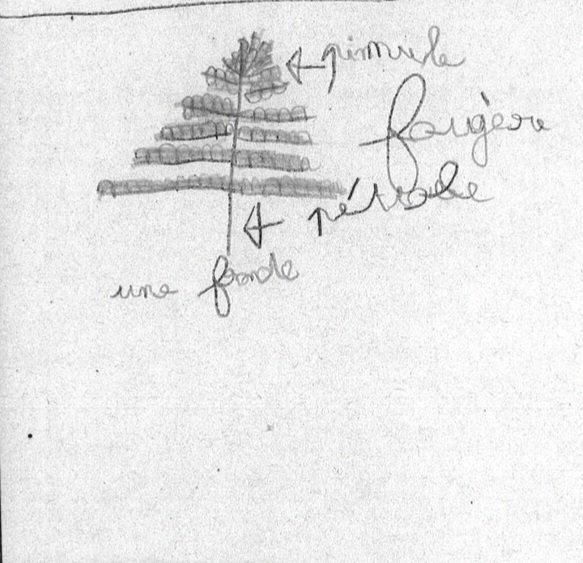 pinnule
fougère
pétiole
une fronde